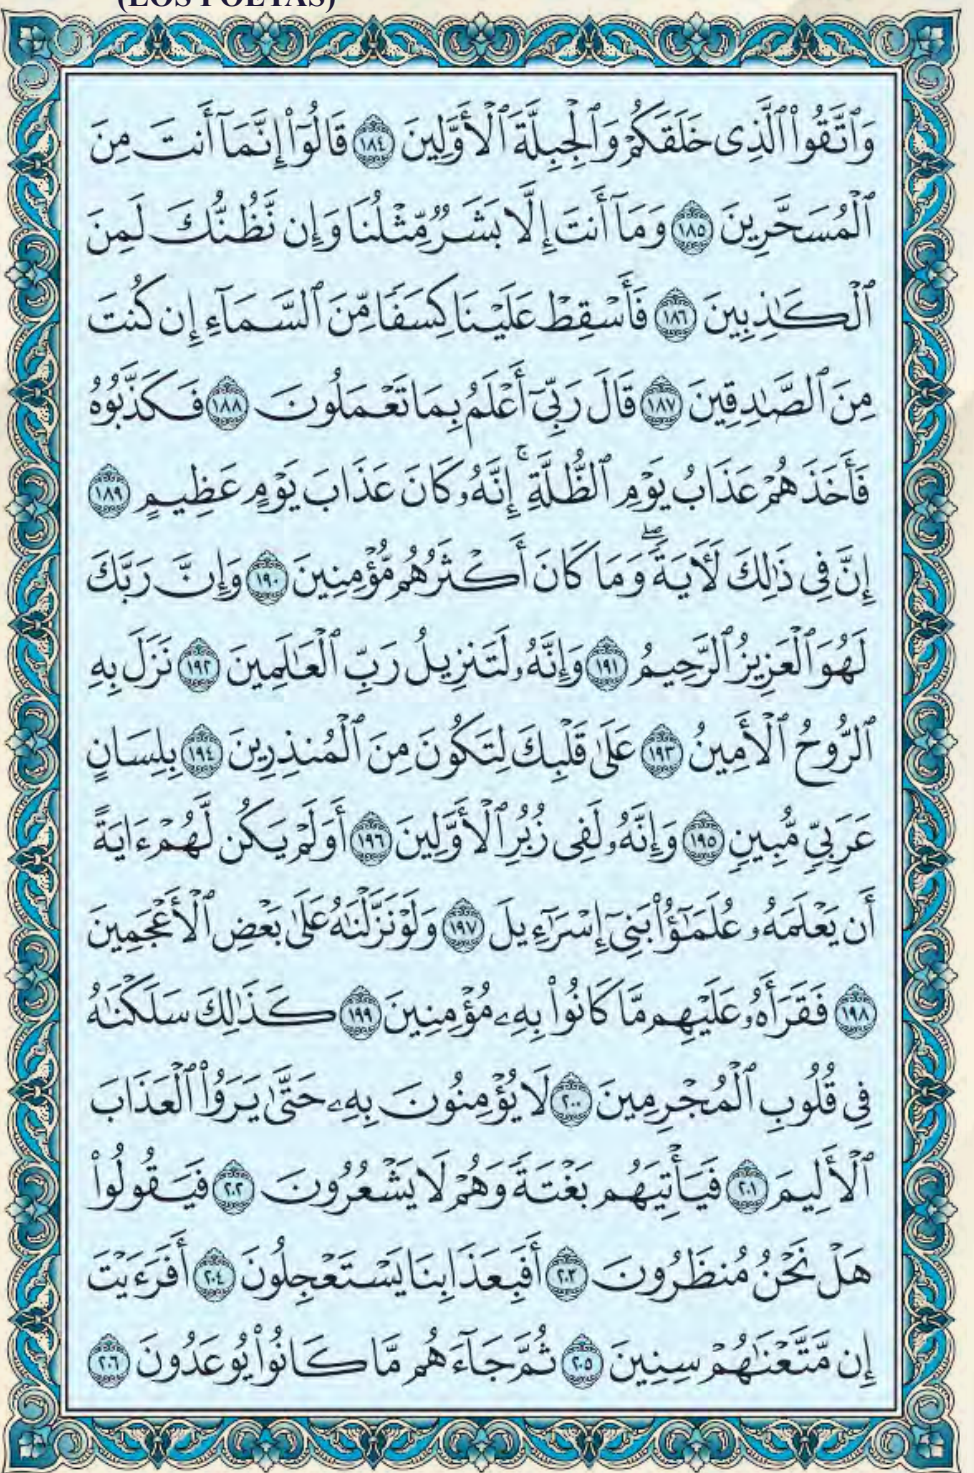 (LOS POETAS)
وَٱتَّقُواْ ٱلَّذِى خَلَقَكُمْ وَٱلْجِبِلَّةَ ٱلْأَوَّلِينَ ١٨٤ قَالُوٓاْ إِنَّمَآ أَنتَ مِنَ
ٱلْمُسَحَّرِينَ ١٨٥ وَمَآ أَنتَ إِلَّا بَشَرٌ مِّثْلُنَا وَإِن نَّظُنُّكَ لَمِنَ
ٱلْكَٰذِبِينَ ١٨٦ فَأَسْقِطْ عَلَيْنَا كِسَفًا مِّنَ ٱلسَّمَآءِ إِن كُنتَ
مِنَ ٱلصَّٰدِقِينَ ١٨٧ قَالَ رَبِّىٓ أَعْلَمُ بِمَا تَعْمَلُونَ ١٨٨ فَكَذَّبُوهُ
فَأَخَذَهُمْ عَذَابُ يَوْمِ ٱلظُّلَّةِ ۚ إِنَّهُۥ كَانَ عَذَابَ يَوْمٍ عَظِيمٍ ١٨٩
إِنَّ فِى ذَٰلِكَ لَأٓيَةً ۖ وَمَا كَانَ أَكْثَرُهُم مُّؤْمِنِينَ ١٩٠ وَإِنَّ رَبَّكَ
لَهُوَ ٱلْعَزِيزُ ٱلرَّحِيمُ ١٩١ وَإِنَّهُۥ لَتَنزِيلُ رَبِّ ٱلْعَٰلَمِينَ ١٩٢ نَزَلَ بِهِ
ٱلرُّوحُ ٱلْأَمِينُ ١٩٣ عَلَىٰ قَلْبِكَ لِتَكُونَ مِنَ ٱلْمُنذِرِينَ ١٩٤ بِلِسَانٍ
عَرَبِىٍّ مُّبِينٍ ١٩٥ وَإِنَّهُۥ لَفِى زُبُرِ ٱلْأَوَّلِينَ ١٩٦ أَوَلَمْ يَكُن لَّهُمْ ءَايَةً
أَن يَعْلَمَهُۥ عُلَمَٰٓؤُاْ بَنِىٓ إِسْرَٰٓءِيلَ ١٩٧ وَلَوْ نَزَّلْنَٰهُ عَلَىٰ بَعْضِ ٱلْأَعْجَمِينَ
١٩٨ فَقَرَأَهُۥ عَلَيْهِم مَّا كَانُواْ بِهِۦ مُؤْمِنِينَ ١٩٩ كَذَٰلِكَ سَلَكْنَٰهُ
فِى قُلُوبِ ٱلْمُجْرِمِينَ ٢٠٠ لَا يُؤْمِنُونَ بِهِۦ حَتَّىٰ يَرَوُاْ ٱلْعَذَابَ
ٱلْأَلِيمَ ٢٠١ فَيَأْتِيَهُم بَغْتَةً وَهُمْ لَا يَشْعُرُونَ ٢٠٢ فَيَقُولُواْ
هَلْ نَحْنُ مُنظَرُونَ ٢٠٣ أَفَبِعَذَابِنَا يَسْتَعْجِلُونَ ٢٠٤ أَفَرَءَيْتَ
إِن مَّتَّعْنَٰهُمْ سِنِينَ ٢٠٥ ثُمَّ جَآءَهُم مَّا كَانُواْ يُوعَدُونَ ٢٠٦